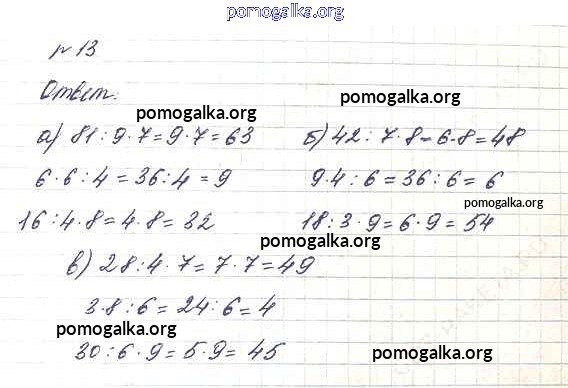 pomogalka.org
№ 13
Ответ:
pomogalka.org pomogalka.org
а) 81 : 9 · 7 = 9 · 7 = 63 б) 42 : 7 · 8 = 6 · 8 = 48
6 · 6 : 4 = 36 : 4 = 9 9 · 4 : 6 = 36 : 6 = 6
pomogalka.org
16 : 4 · 8 = 4 · 8 = 32 18 : 3 · 9 = 6 · 9 = 54
pomogalka.org
в) 28 : 4 · 7 = 7 · 7 = 49
3 · 8 : 6 = 24 : 6 = 4
pomogalka.org
30 : 6 · 9 = 5 · 9 = 45 pomogalka.org